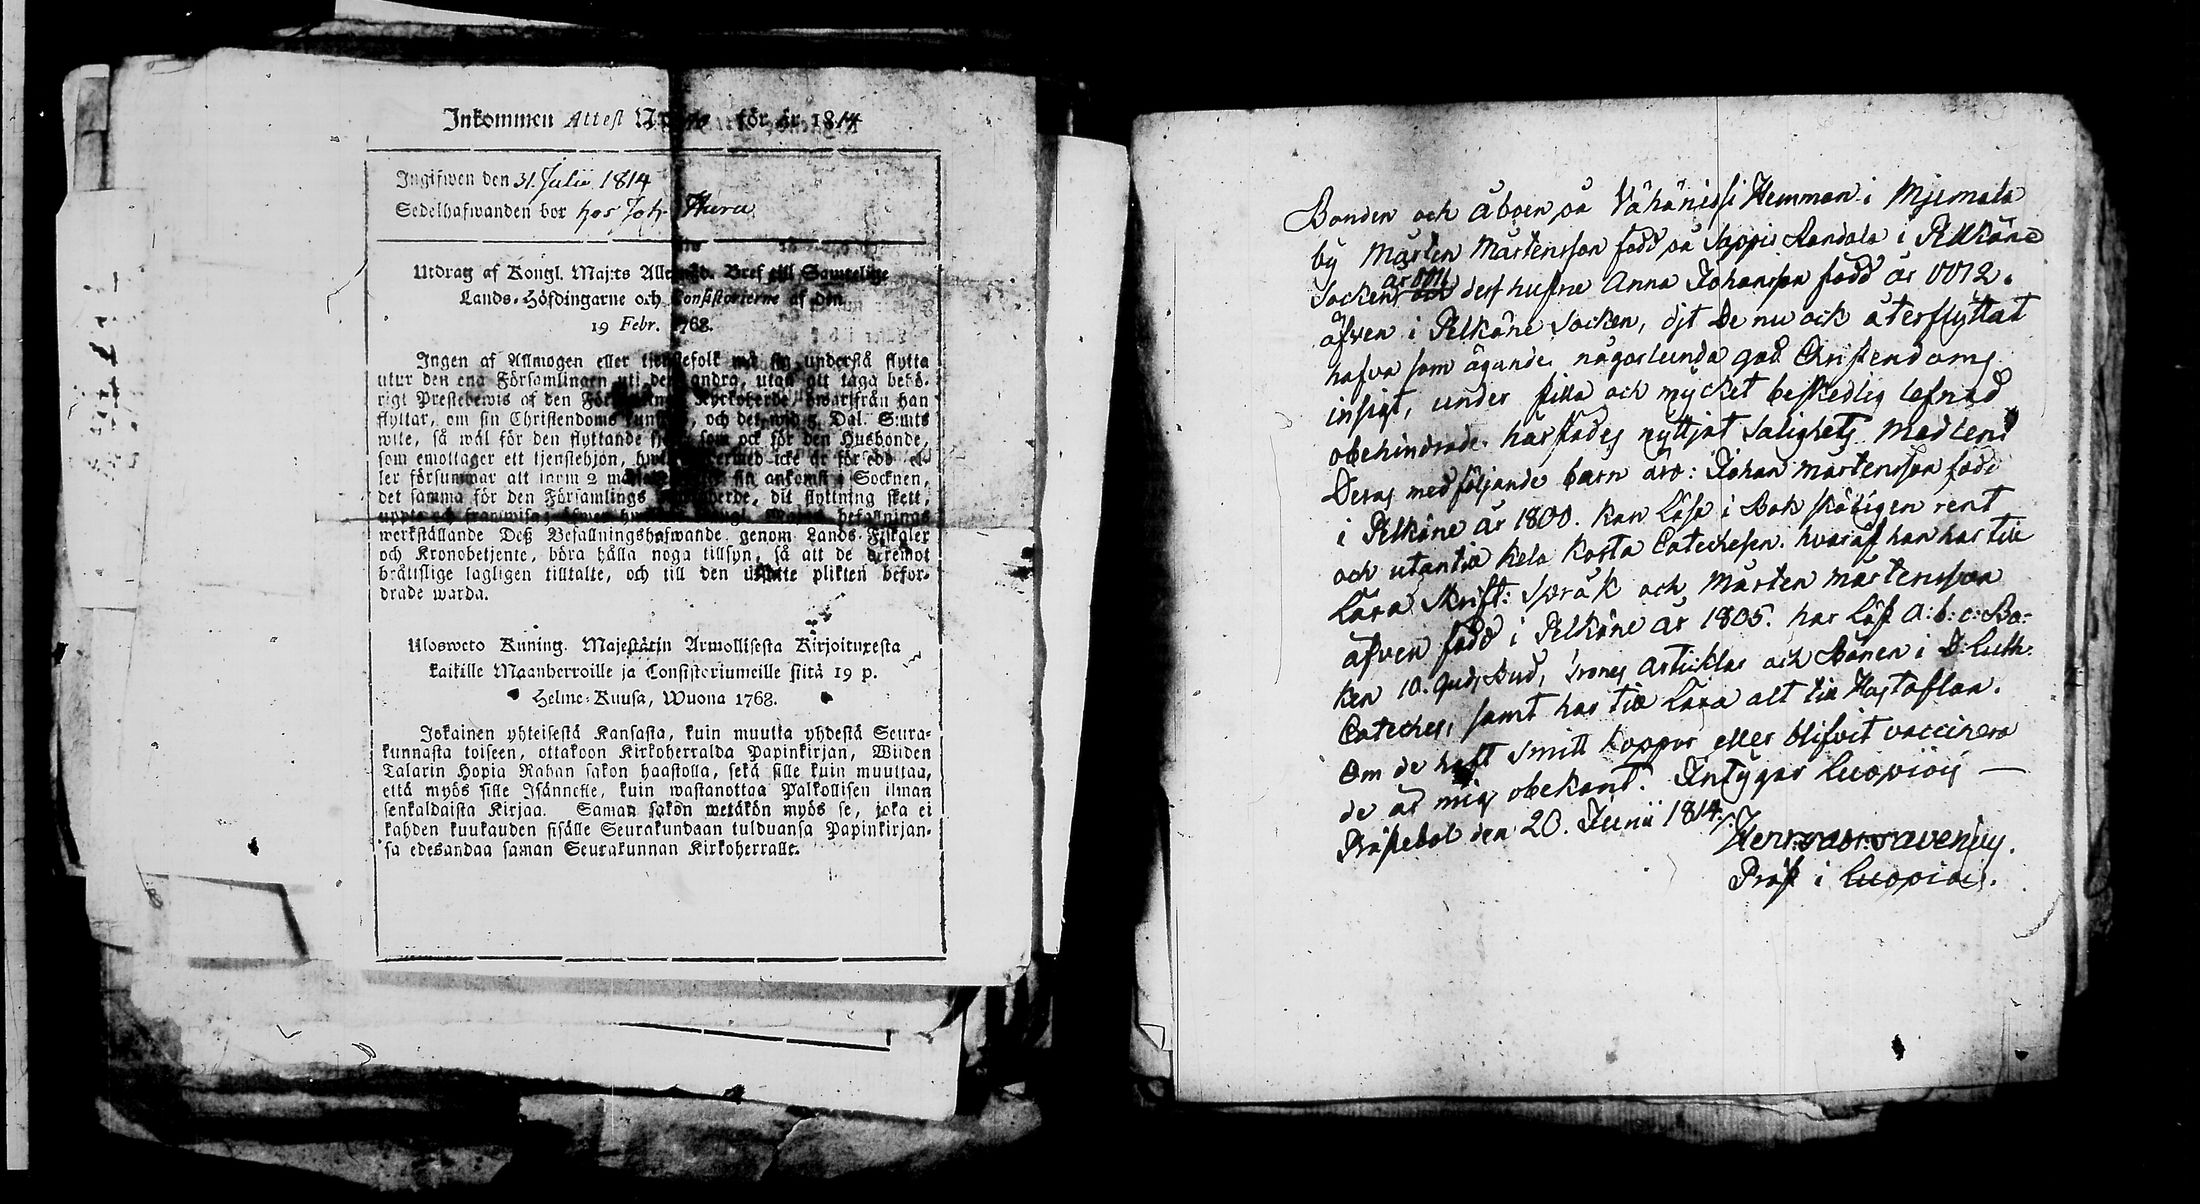 Inkommen Attest N:o för år 1814
Ingifwen den 31. Julii 1814
Sedelhafwanden bor hos Joh. Thura
Utdrag af Kongl. Maj:ts Allernåd. Bref till Samtelige
Lands-Höfdingarne och Consistorierne af den
19 Febr. 1768.
Ingen af Allmogen eller tjenstefolk må sig understå flytta
utur den ena Församlingen uti den andra, utan att taga behö-
rigt Prestebewis af den Församlings Kyrkoherde, hwarifrån han
flyttar, om sin Christendoms kunskap, och det wid 5 Dal. S:mts
wite, så wäl för den flyttande sjelf, som ock för den Husbonde,
som emottager ett tjenstehjon, hwilket dermed icke är försedd el-
ler försummar att inom 2 månader efter sin ankomst i Socknen,
det samma för den Församlings Kyrkoherde, dit flyttning skett,
uppte och framwisa; öfwer hwilket Kongl. Maj:ts befallnings
werkställande Deß Befallningshafwande, genom Lands-Fiskaler
och Kronobetjente, böra hålla noga tillsyn, så att de deremot
bråttslige lagligen tilltalte, och till den utsatte plikten befor-
drade warda.
Ulosweto Kuning. Majestätin Armollisesta Kirjoituxesta
kaikille Maanherroille ja Consistoriumeille siitä 19 p.
Helme-Kuusa, Wuona 1768.
Jokainen yhteisestä Kansasta, kuin muutta yhdestä Seura-
kunnasta toiseen, ottakoon Kirkoherralda Papinkirjan, Wiiden
Talarin Hopia Rahan sakon haastolla, sekä sille kuin muuttaa,
että myös sille Isännelle, kuin wastanottaa Palkollisen ilman
senkaldaista Kirjaa. Saman sakon wetäkön myös se, joka ei
kahden kuukauden sisälle Seurakundaan tulduansa Papinkirjan-
sa edesandaa saman Seurakunnan Kirkoherralle.
Bonden och Åboen på Vähänissi Hemman i Mjemala
by Mårten Mårtensson född på Seppis Randala i Pelkäne
Socken och des hustru Anna Johansson född år
äfven i Pelkäne Socken, dit De nu ock återflyttat
hafva som ägande någorlunda god Christendoms
insigt, under stilla och mycket beskedlig lefnad
obehindrade härstädes nyttjat Salighets Medlen
Deras medföljande barn äro: Johan Mårtensson född
i Pelkäne år 1800. kan läsa i Bok skäligen rent
och utantill hela korta Catechesen. hvaraf han har till
lära Skrift: Språk och Mårten Mårtensson
äfven född i Pelkäne år 1805. har läst a:b:c: Bo-
ken 10. Guds Bud, trones Articklar och Bönen i D: Luth:
Coteches, samt har till lära alt till Hustaflan.
Om de haft Smitt koppor eller blifvit vaccinera
de är mig obekant. Intygar Luopiois —
Präst den 20. Junii 1814.
Präst i Luopiois.